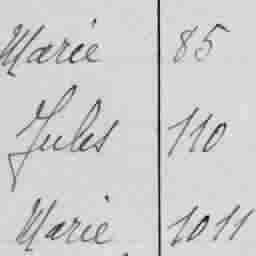 Marie 85
Jules 110
Marie 1011